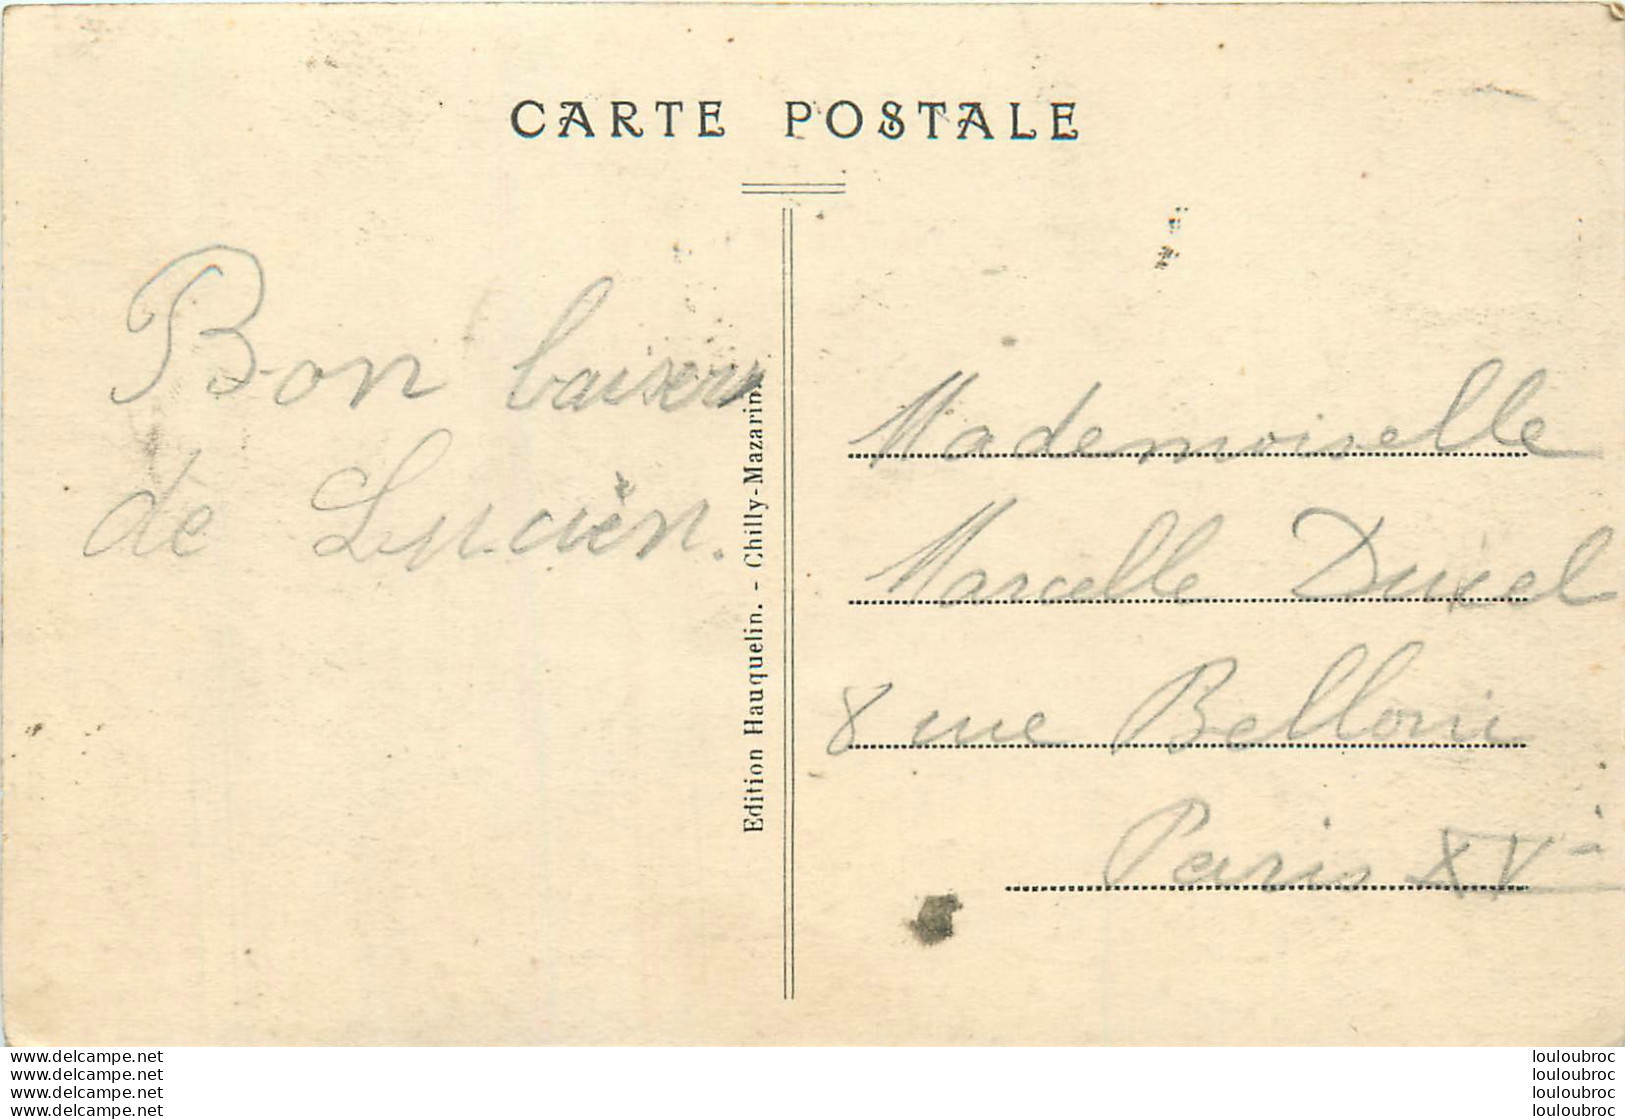 CARTE POSTALE
Bon baisers
de Lucien.
Edition Hauquelin. - Chilly-Mazarin.
Mademoiselle
Marcelle Duxel
8 rue Belloni
Paris XV
www.delcampe.net
www.delcampe.net
www.delcampe.net
www.delcampe.net
louloubroc
louloubroc
louloubroc
louloubroc